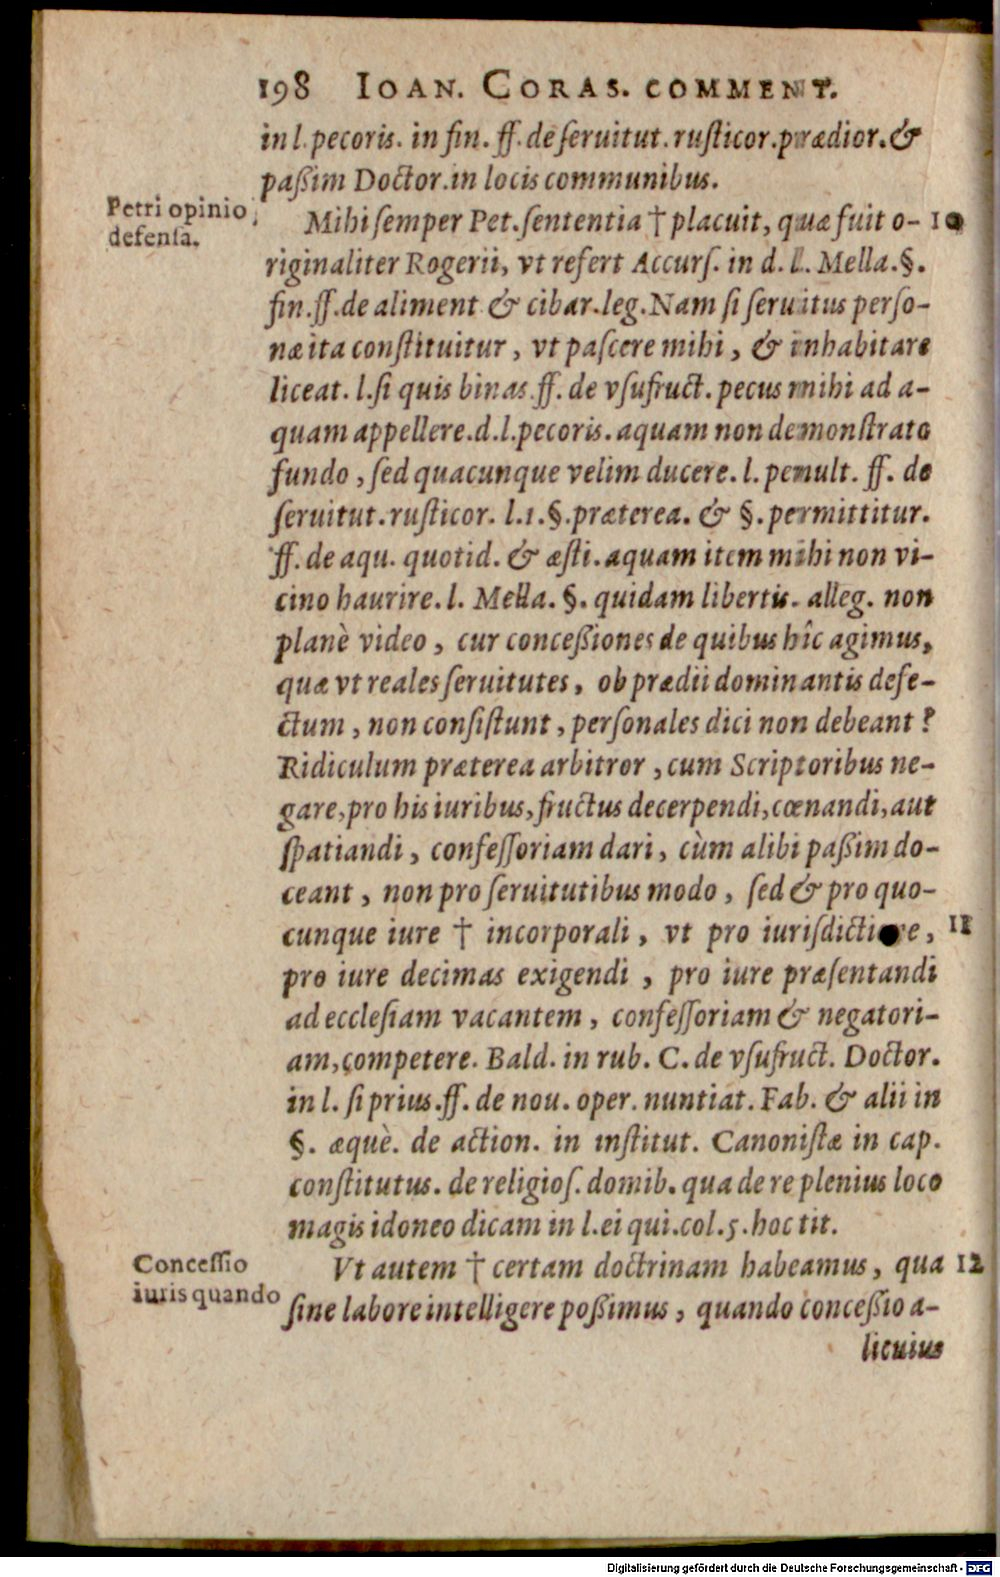 198 IOAN. CORAS. COMMENT.
in l. pecoris. in fin. ff. de ſeruitut. ruſticor. prædior. &
paßim Doctor. in locis communibus.
Petri opinio
defenſa.
Mihi ſemper Pet. ſententia † placuit, quæ fuit o- 10
riginaliter Rogerii, vt refert Accurſ. in d. l. Mella. §.
fin. ff. de aliment & cibar. leg. Nam ſi ſeruitus perſo-
næ ita conſtituitur, vt paſcere mihi, & inhabitare
liceat. l. ſi quis binas. ff. de vſufruct. pecus mihi ad a-
quam appellere. d. l. pecoris. aquam non demonſtrato
fundo, ſed quacunque velim ducere. l. penult. ff. de
ſeruitut. ruſticor. l. 1. §. præterea. & §. permittitur.
ff. de aqu. quotid. & æſti. aquam item mihi non vi-
cino haurire. l. Mella. §. quidam libertis. alleg. non
planè video, cur conceßiones de quibus hîc agimus,
quæ vt reales ſeruitutes, ob prædii dominantis defe-
ctum, non conſiſtunt, perſonales dici non debeant?
Ridiculum præterea arbitror, cum Scriptoribus ne-
gare, pro his iuribus, fructus decerpendi, cœnandi, aut
ſpatiandi, confeſſoriam dari, cùm alibi paßim do-
ceant, non pro ſeruitutibus modo, ſed & pro quo-
cunque iure † incorporali, vt pro iurisdictione, 11
pro iure decimas exigendi, pro iure præſentandi
ad eccleſiam vacantem, confeſſoriam & negatori-
am, competere. Bald. in rub. C. de vſufruct. Doctor.
in l. ſi prius. ff. de nou. oper. nuntiat. Fab. & alii in
§. æquè. de action. in inſtitut. Canoniſtæ in cap.
conſtitutus. de religioſ. domib. qua de re plenius loco
magis idoneo dicam in l. ei qui. col. 5. hoc tit.
Conceſſio
iuris quando
Vt autem † certam doctrinam habeamus, qua 12
ſine labore intelligere poßimus, quando conceßio a-
licuius
Digitalisierung gefördert durch die Deutsche Forschungsgemeinschaft - DFG